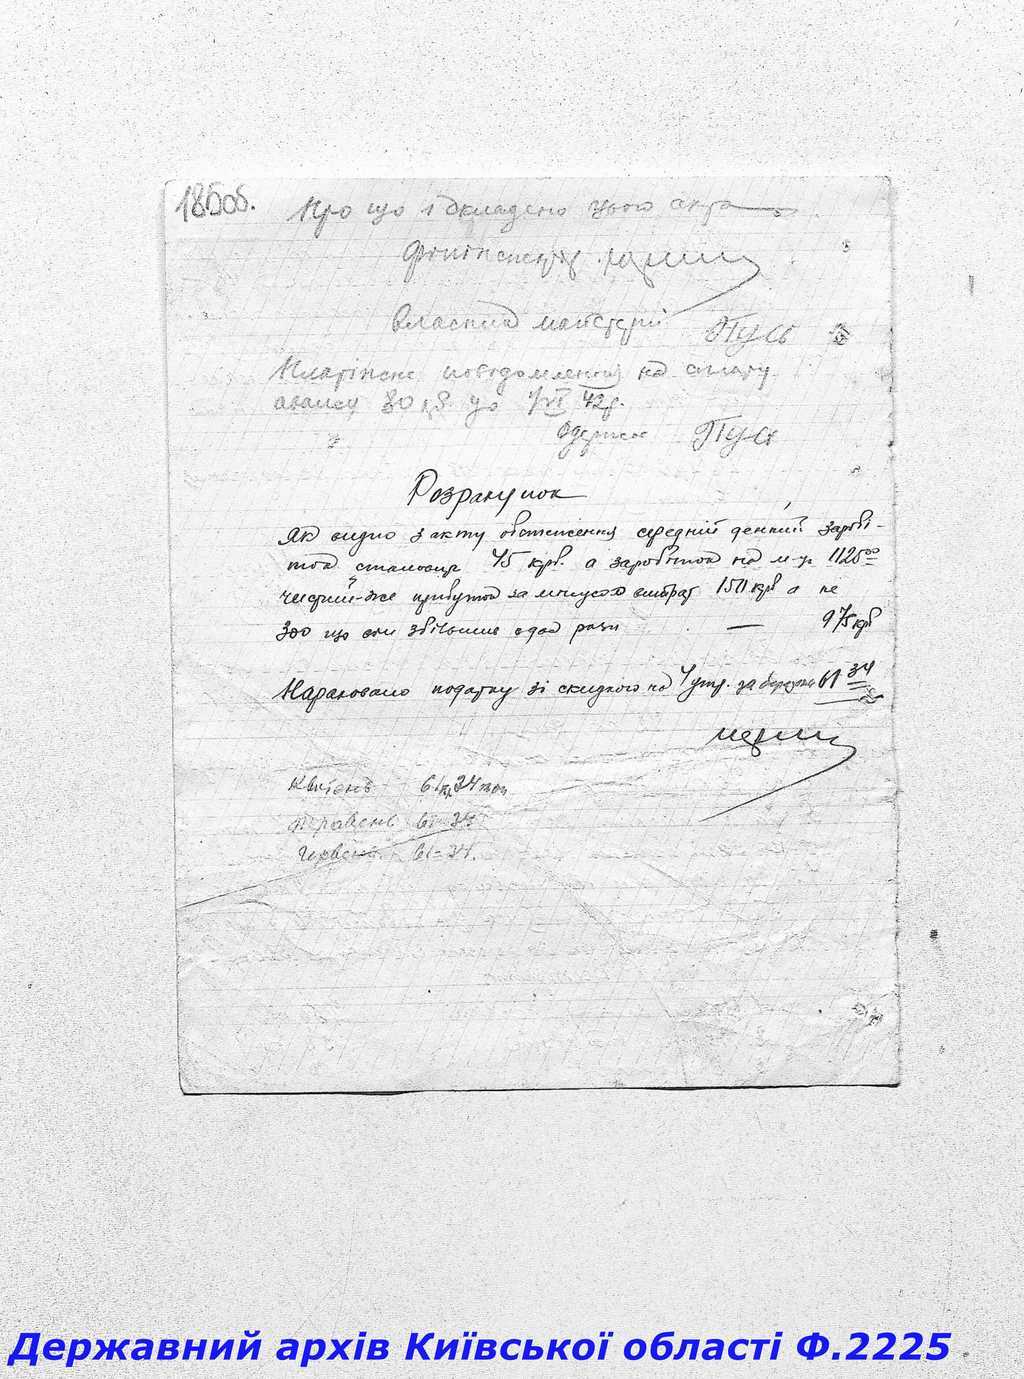 185об.
Про що і складено цього акта
Фінінспектор
Власник майстерні ПУсь
Платіжне повідомлення на сплату
авансу 80 крб до 1/VI 42р.
Одержав ПУсь
Розрахунок
Як видно з акту обстеження середній денний заробі-
ток становить 45 крб. а заробіток на м-ць 1125.00
чистий-же прибуток за мінусом витрат 150 крб а не
300 що они збільшив в два рази — 975 крб
Нараховано податку зі скидкою на 4 утр. за березень 61 34
Квітень 61 кр 34 коп
травень 61=34
Червень 61=34.
Державний архів Київської області Ф.2225